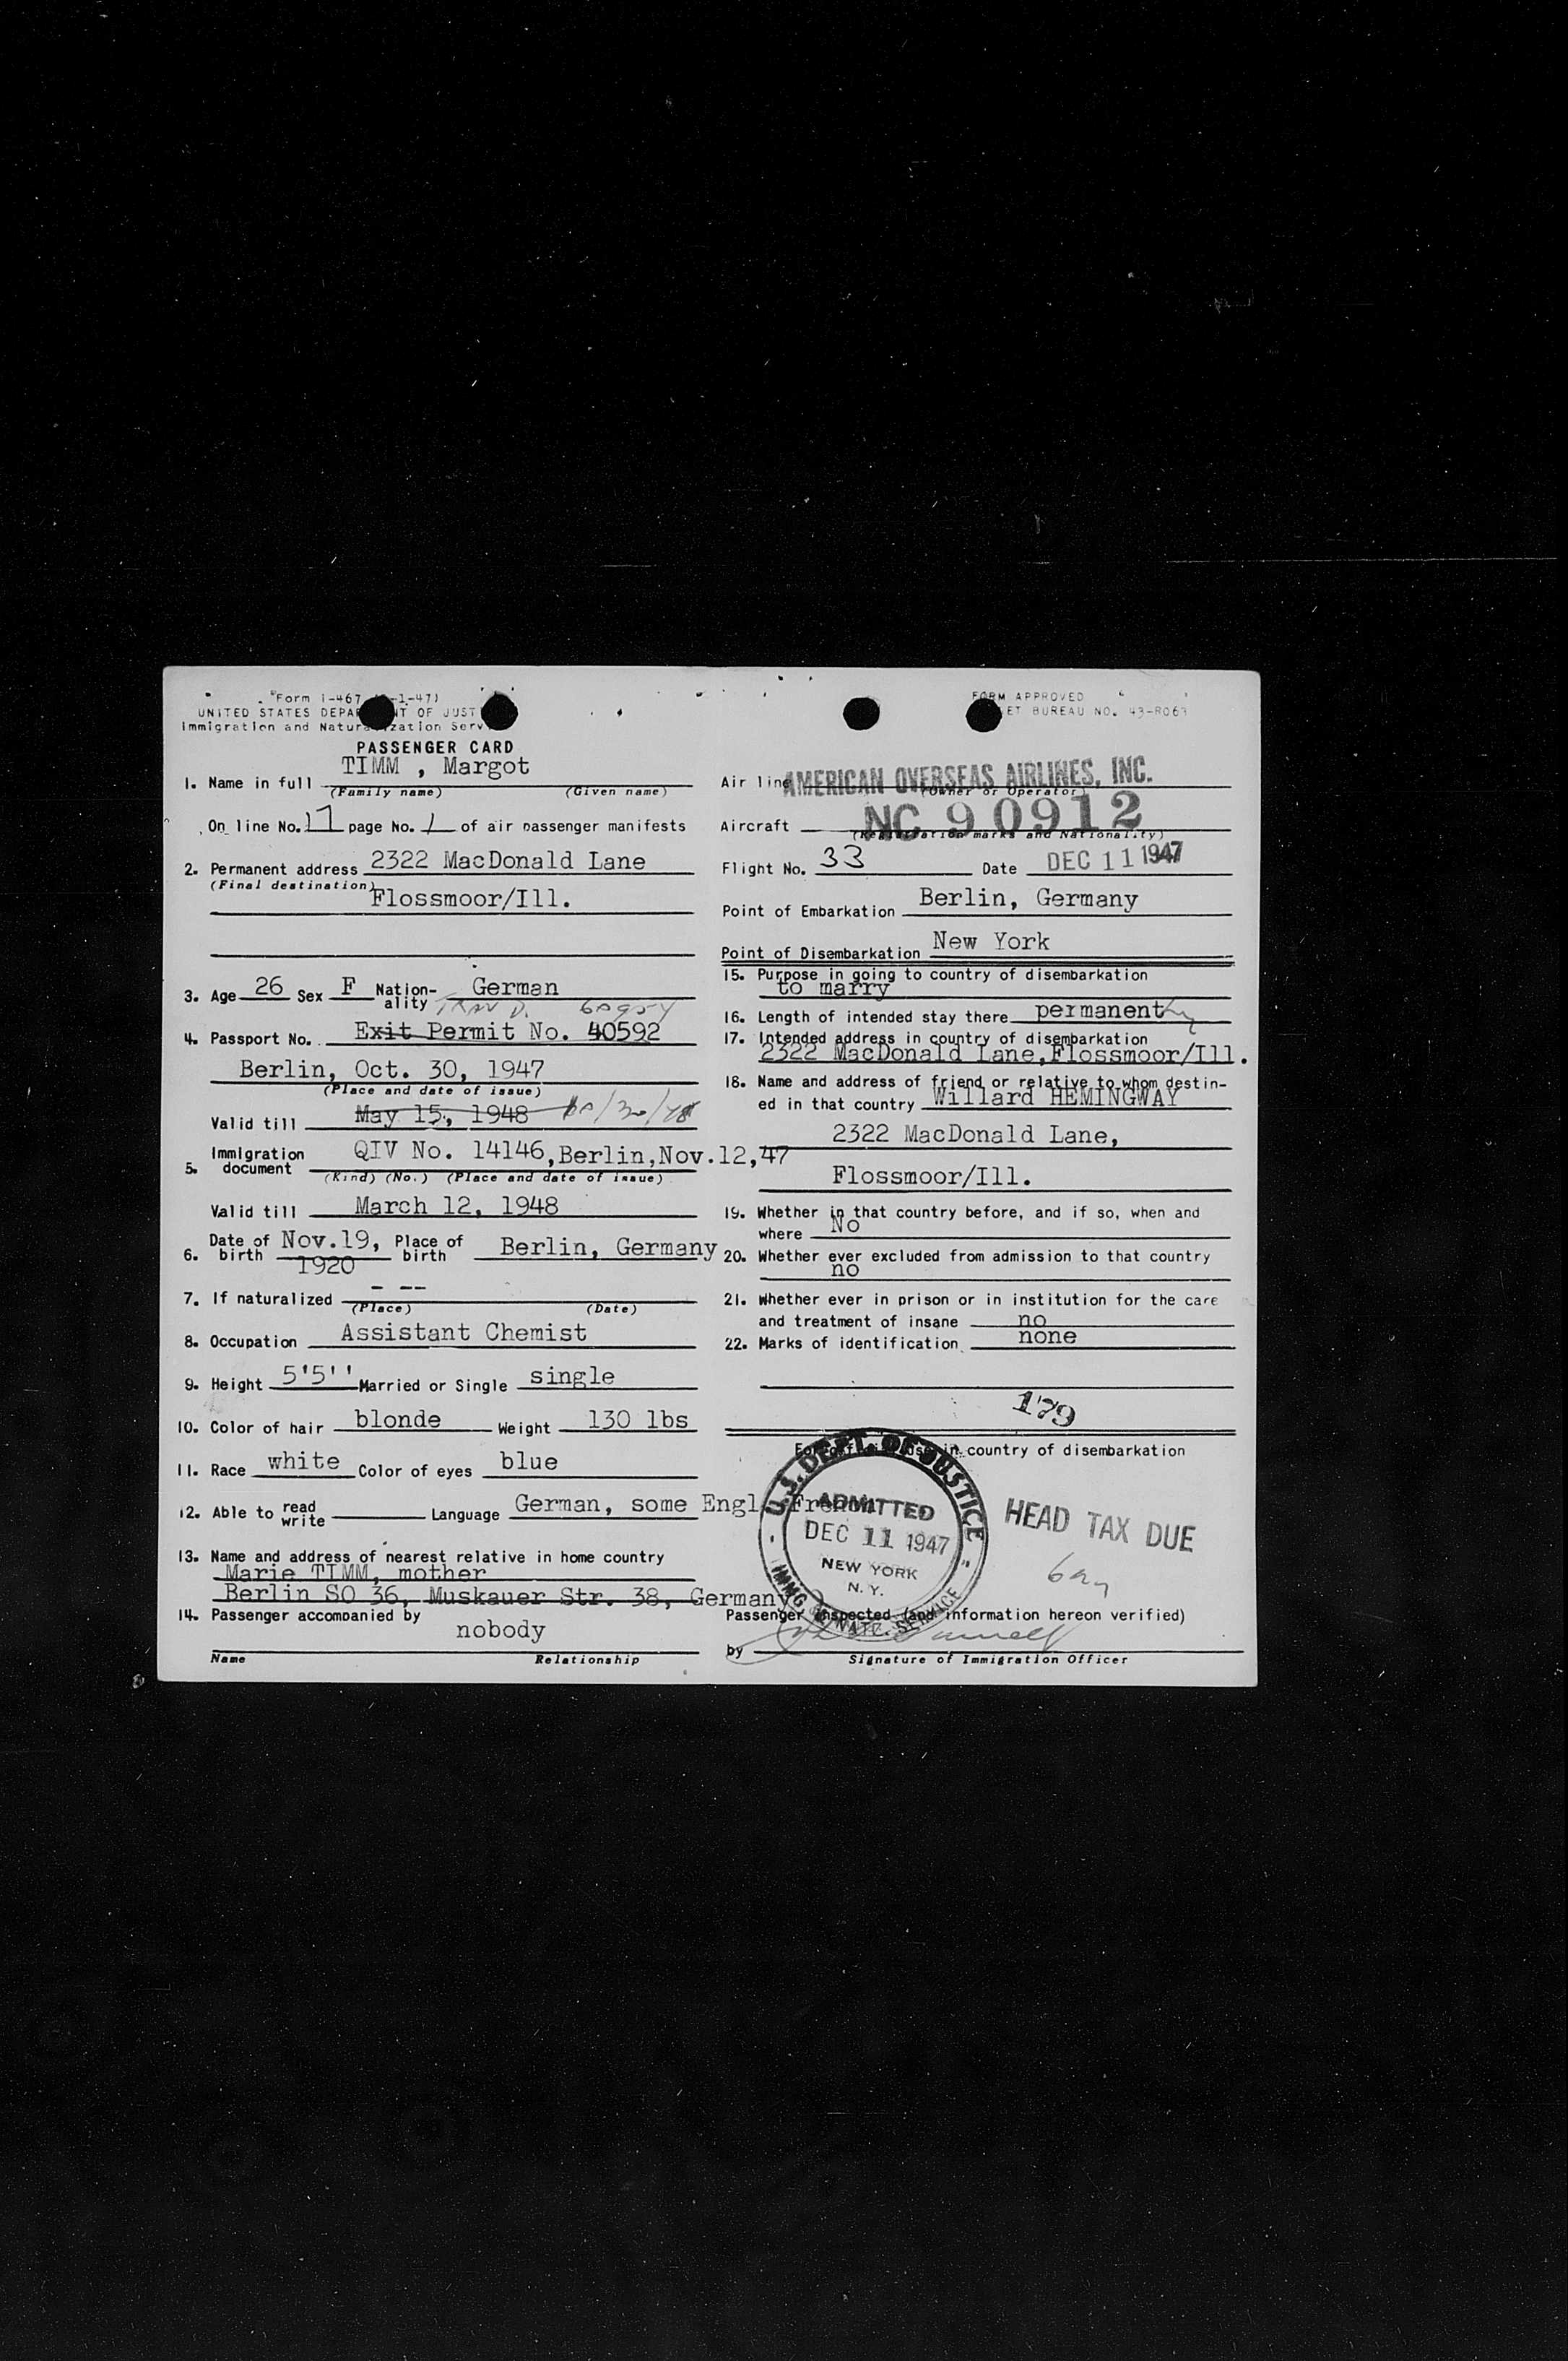 Form I-467 -1-47)
UNITED STATES DEPA NT OF JUST
Immigration and Natura zation Serv
PASSENGER CARD
1. Name in full TIMM , Margot
(Family name) (Given name)
On line No. 17 page No. 1 of air passenger manifests
2. Permanent address 2322 MacDonald Lane
(Final destination)
Flossmoor/Ill.
3. Age 26 Sex F Nation-ality German
TRAV D.
4. Passport No. Exit Permit No. 40592
Berlin, Oct. 30, 1947
(Place and date of issue)
Valid till May 15, 1948
5. Immigration document QIV No. 14146, Berlin, Nov.12,47
(Kind) (No.) (Place and date of issue)
Valid till March 12, 1948
6. Date of birth Nov.19, 1920 Place of birth Berlin, Germany
7. If naturalized - --
(Place) (Date)
8. Occupation Assistant Chemist
9. Height 5'5'' Married or Single single
10. Color of hair blonde Weight 130 lbs
11. Race white Color of eyes blue
12. Able to read write Language German, some Engl. French
13. Name and address of nearest relative in home country
Marie TIMM, mother
Berlin SO 36, Muskauer Str. 38, Germany
14. Passenger accompanied by
nobody
Name Relationship
FORM APPROVED
ET BUREAU NO. 43-R063
Air line AMERICAN OVERSEAS AIRLINES, INC.
(Owner or Operator)
Aircraft NC 90912
(Registration marks and Nationality)
Flight No. 33 Date DEC 11 1947
Point of Embarkation Berlin, Germany
Point of Disembarkation New York
15. Purpose in going to country of disembarkation
to marry
16. Length of intended stay there permanent
17. Intended address in country of disembarkation
2322 MacDonald Lane,Flossmoor/Ill.
18. Name and address of friend or relative to whom destin-
ed in that country Willard HEMINGWAY
2322 MacDonald Lane,
Flossmoor/Ill.
19. Whether in that country before, and if so, when and
where No
20. Whether ever excluded from admission to that country
no
21. Whether ever in prison or in institution for the care
and treatment of insane no
22. Marks of identification none
179
For official use in country of disembarkation
U.S. DEPT. OF JUSTICE
ADMITTED
DEC 11 1947
NEW YORK
N.Y.
IMMG. & NATZ. SERVICE
HEAD TAX DUE
Passenger inspected (and information hereon verified)
by
Signature of Immigration Officer